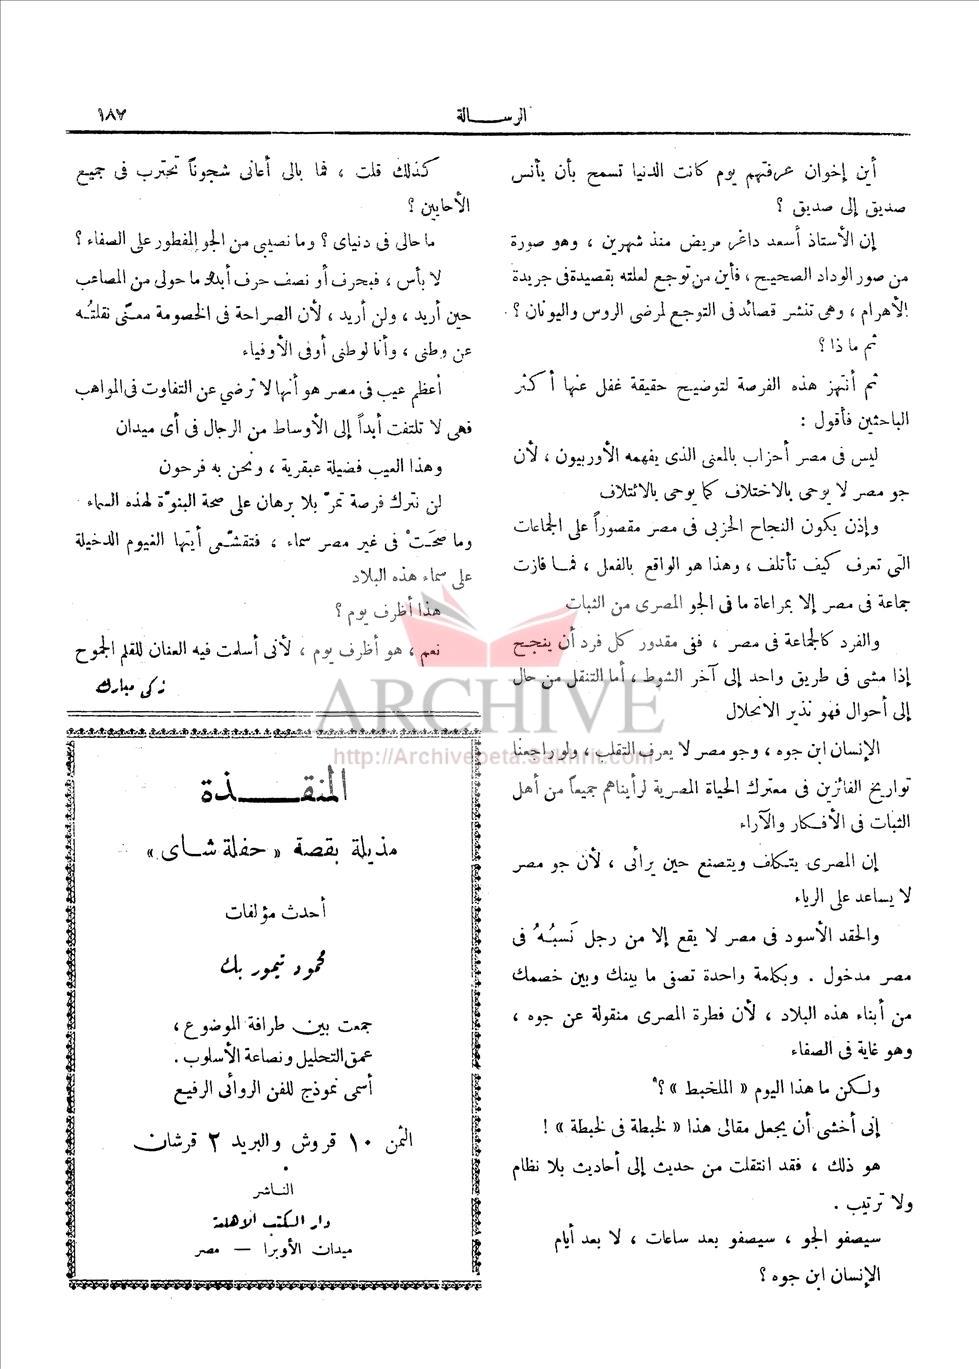 الرسالة
١٨٧
أين إخوان عرفتهم يوم كانت الدنيا تسمح بأن يأنس
صديق إلى صديق ؟
إن الأستاذ أسعد داغر مريض منذ شهرين ، وهو صورة
من صور الوداد الصحيح ، فأين من توجع لعلته بقصيدة فى جريدة
الأهرام ، وهى تنشر قصائد فى التوجع لمرضى الروس واليونان ؟
ثم ماذا ؟
ثم أنتهز هذه الفرصة لتوضيح حقيقة غفل عنها أكثر
الباحثين فأقول :
ليس فى مصر أحزاب بالمعنى الذى يفهمه الأوربيون ، لأن
جو مصر لا يوحى بالاختلاف كما يوحى بالائتلاف
وإذن يكون النجاح الحزبى فى مصر مقصوراً على الجماعات
التى تعرف كيف تأتلف ، وهذا هو الواقع بالفعل ، فما فازت
جماعة فى مصر إلا بمراعاة ما فى الجو المصرى من الثبات
والفرد كالجماعة فى مصر ، ففى مقدور كل فرد أن ينجح
إذا مشى فى طريق واحد إلى آخر الشوط ، أما التنقل من حال
إلى أحوال فهو نذير الانحلال
الإنسان ابن جوه ، وجو مصر لا يعرف التقلب ، ولو راجعنا
تواريخ الفائزين فى معترك الحياة المصرية لرأيناهم جميعاً من أهل
الثبات فى الأفكار والآراء
إن المصرى يتكلف ويتصنع حين يرائى ، لأن جو مصر
لا يساعد على الرياء
والحقد الأسود فى مصر لا يقع إلا من رجل نَسبُهُ فى
مصر مدخول . وبكلمة واحدة تصفى ما بينك وبين خصمك
من أبناء هذه البلاد ، لأن فطرة المصرى منقولة عن جوه ،
وهو غاية فى الصفاء
ولكن ما هذا اليوم « الملخبط » ؟
إنى أخشى أن يجعل مقالى هذا « لخبطة فى لخبطة » !
هو ذلك ، فقد انتقلت من حديث إلى أحاديث بلا نظام
ولا ترتيب .
سيصفو الجو ، سيصفو بعد ساعات ، لا بعد أيام
الإنسان ابن جوه ؟
كذلك قلت ، فما بالى أعانى شجوناً تحترب فى جميع
الأحايين ؟
ما حالى فى دنياى ؟ وما نصيبى من الجو المفطور على الصفاء ؟
لا بأس ، فبحرف أو نصف حرف أبدد ما حولى من المصاعب
حين أريد ، ولن أريد ، لأن الصراحة فى الخصومة معنًى نقلتُه
عن وطنى ، وأنا لوطنى أوفى الأوفياء
أعظم عيب فى مصر هو أنها لا ترضي عن التفاوت فى المواهب
فهى لا تلتفت أبداً إلى الأوساط من الرجال فى أى ميدان
وهذا العيب فضيلة عبقرية ، ونحن به فرحون
لن نترك فرصة تمرّ بلا برهان على صحة البنوّة لهذه السماء
وما صحَتْ فى غير مصر سماء ، فتقشّعى أيتها الغيوم الدخيلة
على سماء هذه البلاد
هذا أظرف يوم ؟
نعم ، هو أظرف يوم ، لأنى أسلمت فيه العنان للقلم الجموح
زكى مبارك
المنقذة
مذيلة بقصة « حفلة شاى »
أحدث مؤلفات
محمود تيمور بك
جمعت بين طرافة الموضوع ،
عمق التحليل ونصاعة الأسلوب .
أسمى نموذج للفن الروائى الرفيع
الثمن ١٠ قروش والبريد ٢ قرشان
الناشر
دار الكتب الأهلية
ميدان الأوبرا — مصر
ARCHIVE
http://Archivebeta.Sakhrit.com